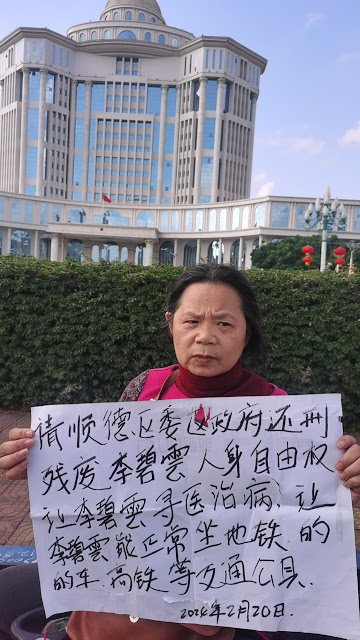 请顺德区委区政府还刑
残废李碧雲人身自由权
让李碧雲寻医治病、让
李碧雲能正常坐地铁、的
的车、高铁等交通公具.
2024年2月20日.